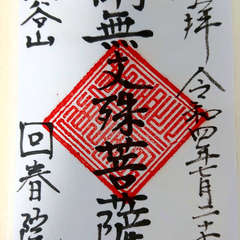 拝
令和四年七月二十
南無文殊菩薩
谷山
回春院